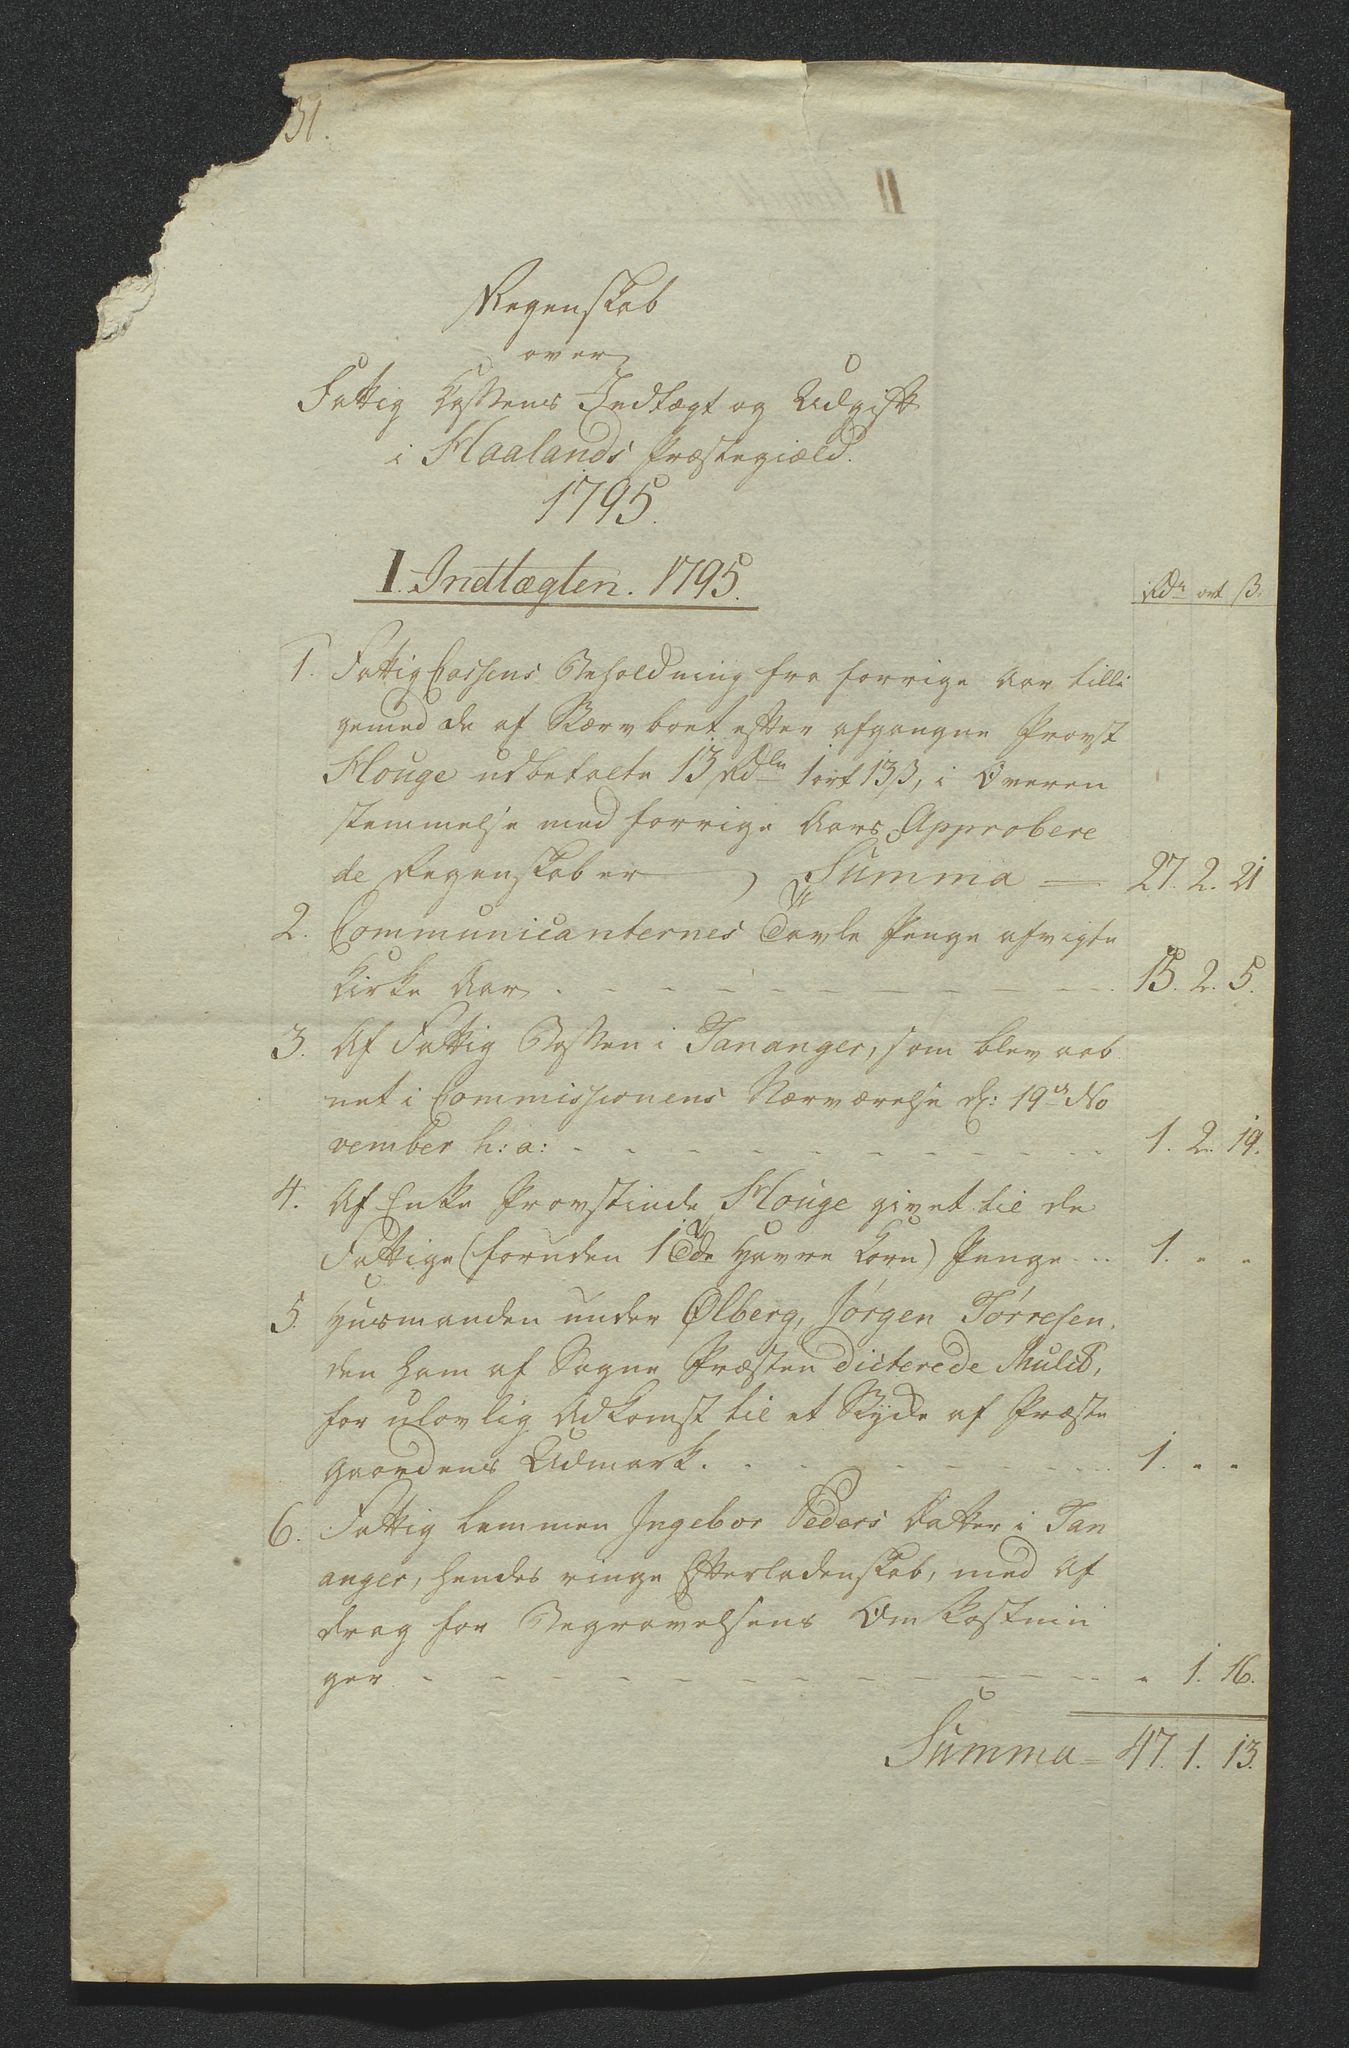 31.
Regenskab
over
Fattig Cassens Indtægt og Udgift
i Haalands Præstegiæld.
1795.
I. Indtægten. 1795.
Rdr ort ß.
1. Fattig Cassens Beholdning fra forrige Aar tilli
gemed de af Stervboet efter afgangne Provst
Houge udbetalte 13 Rdlr 1 ort 13 ß, i Overen
stemmelse med forrige Aars Approbere
de Regenskaber Summa 27. 2. 21
2. Communicanternes Tavle Penge afvigte
Kirke Aar 15. 2. 5.
3. Af Fattig Bøssen i Tananger, som blev aab
net i Commissionens Nærværelse d: 19de No
vember h: a: 1. 2. 19.
4. Af Enke Provstinde Houge givet til de
Fattige (foruden 1 Tde Havre Korn) Penge 1. " "
5. Husmanden under Ølberg, Jørgen Tørresen,
den ham af Sogne Præsten dicterede Mulct,
for ulovlig Adkomst til et Stykke af Præste
Gaardens Udmark. 1. " "
6. Fattig Lemmen Ingebor Peders Datter i Tan
anger, hendes ringe Efterladenskab, med Af
drag for Begravelsens Omkostnin
ger " 1. 16.
Summa 47. 1. 13.